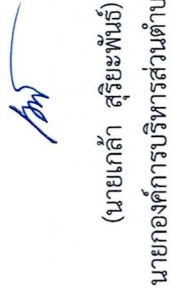 (นายเกล้า สุริยะพันธ์)
นายกองค์การบริหารส่วนตำบ